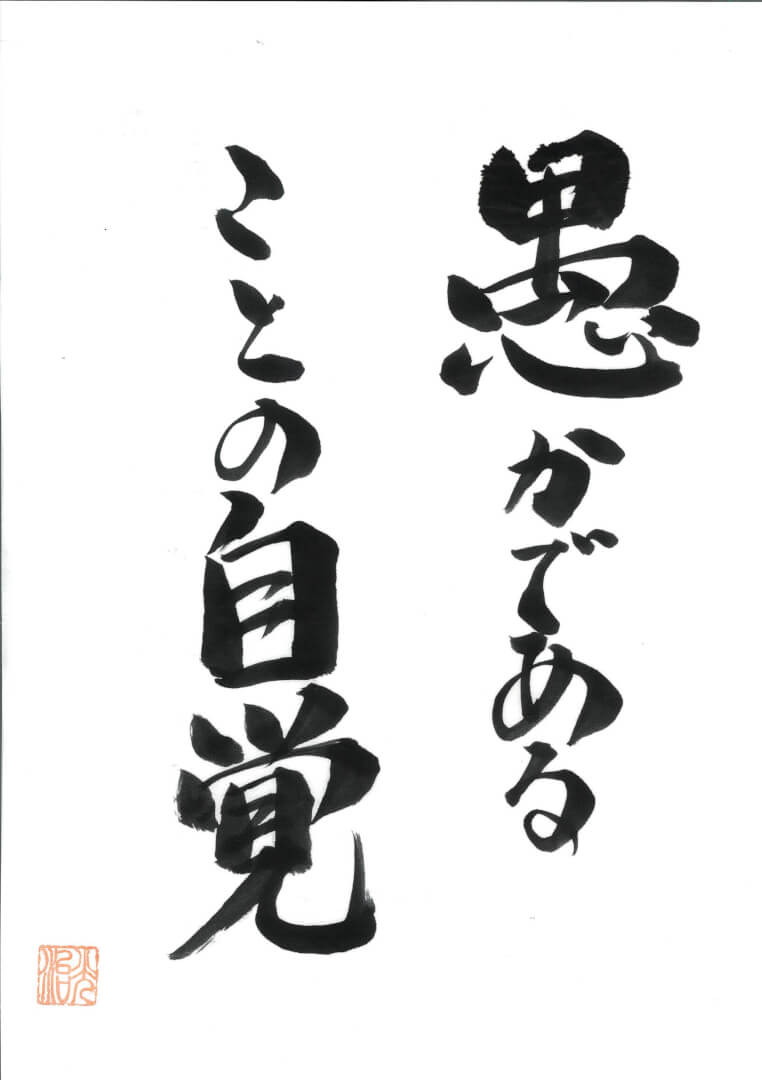 愚かである
ことの自覚